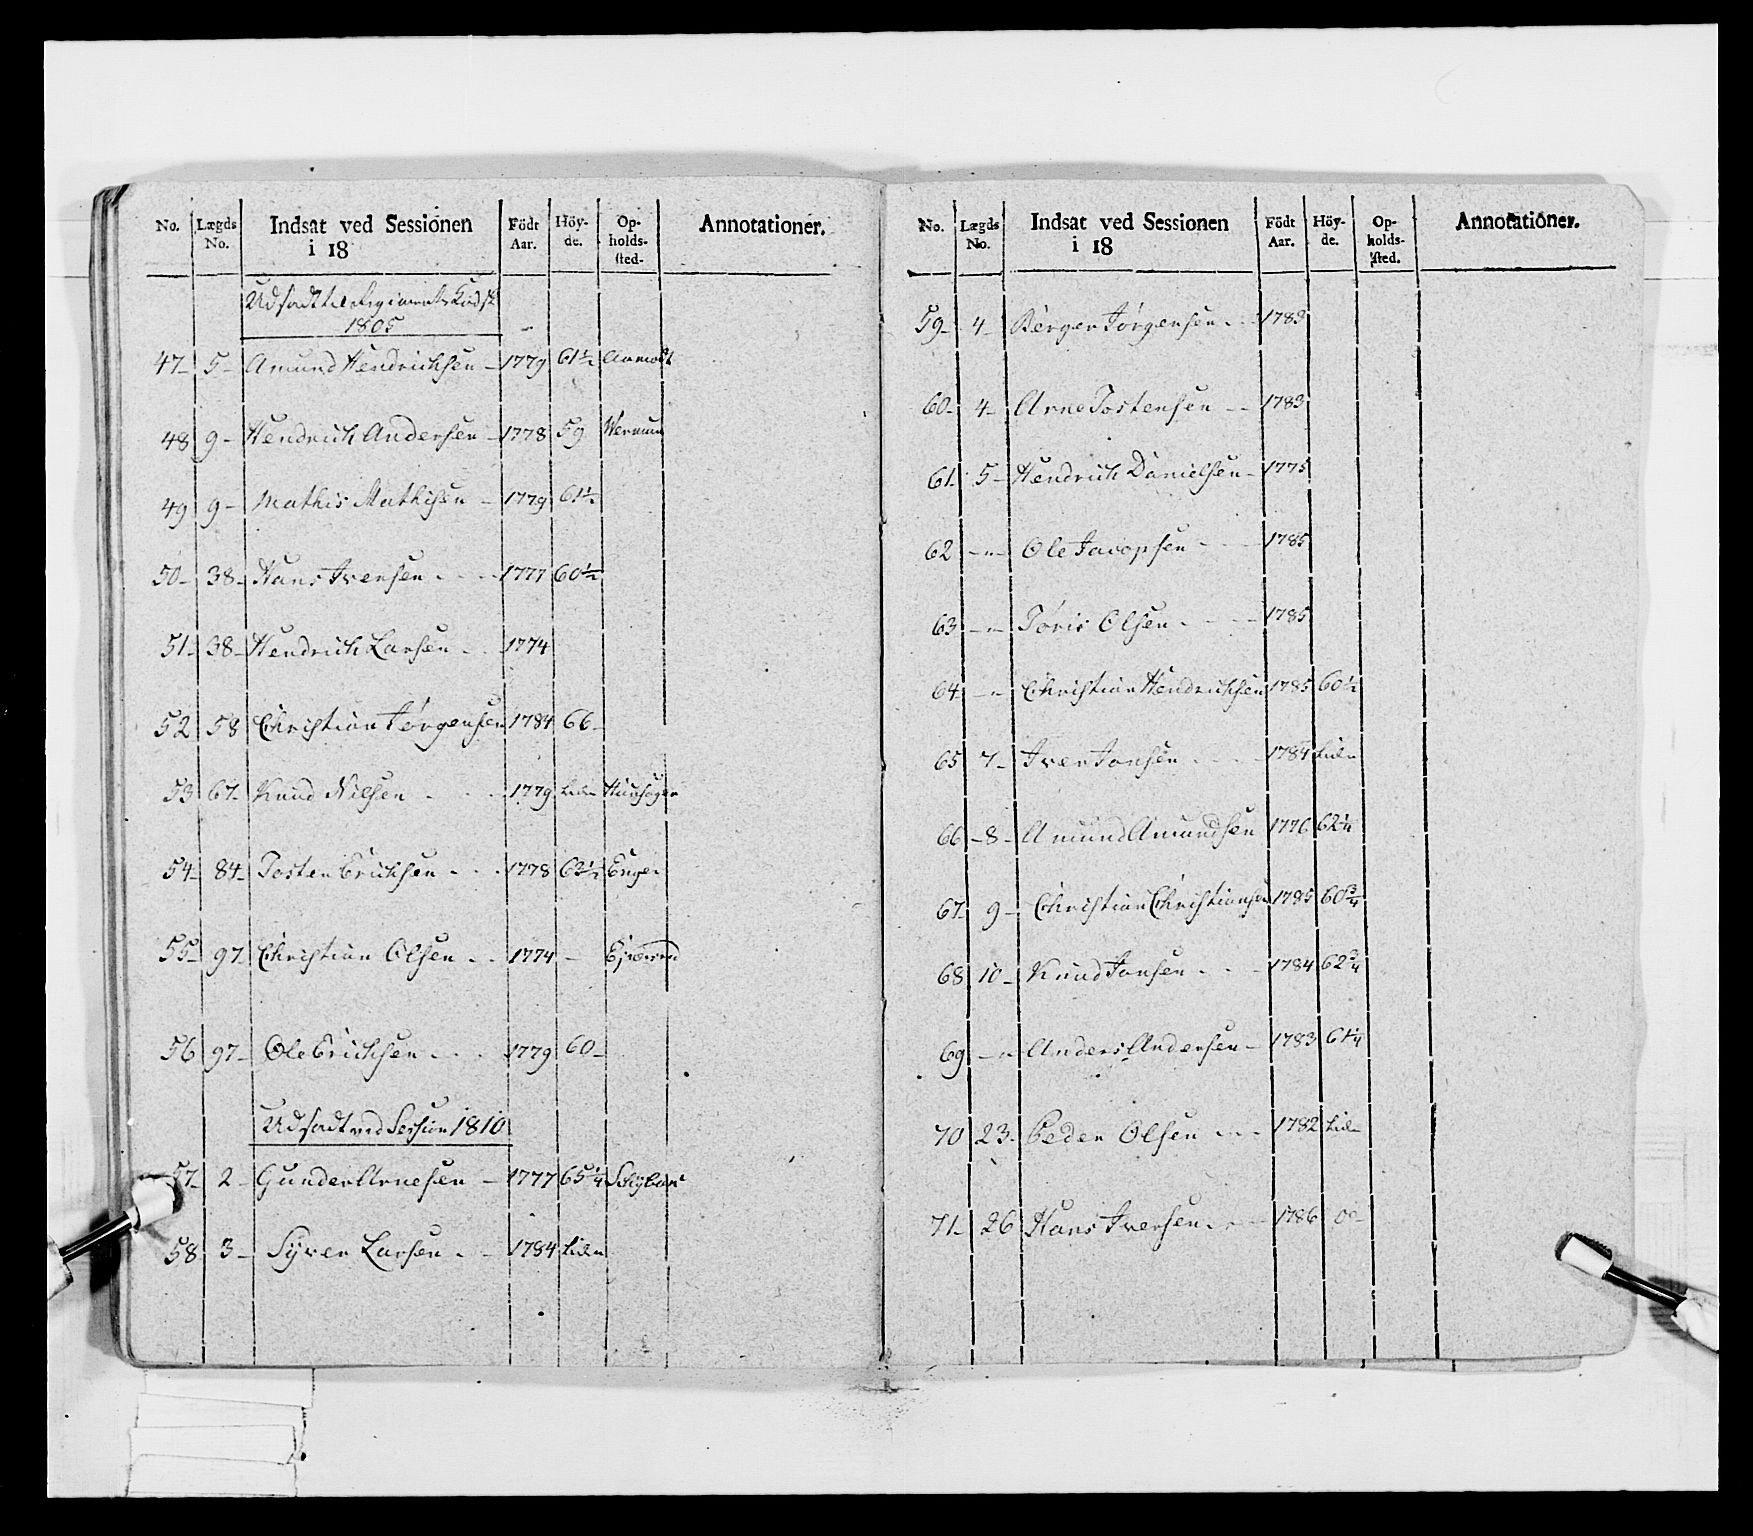 No. Lægds No. Indsat ved Sessionen i 18 Födt Aar. Höy-de. Op-holds-sted. Annotationer.
Udsadt til Regiments
1805
47 5 Amund Hendrichsen 1779 61½
48 9 Hendrich Andersen 1778 59
49 9 Mathis Mathisen 1779 61½
50 38 Hans Iversen 1777 60½
51 38 Hendrich Larsen 1774
52 58 Christian Jørgensen 1784 66
53 67 Knud Nielsen 1779 liden
54 84 Tosten Erichsen 1778 63½ Enger
55 97 Christian Olsen 1774 –
56 97 Ole Erichsen 1779 60
Udsadt ved Session 1810
57 2 Gunder Arnesen 1777 65¼
58 3 Syver Larsen 1784 liden
No. Lægds No. Indsat ved Sessionen i 18 Födt Aar. Höy-de. Op-holds-sted. Annotationer.
59 4 Børger Jørgensen 1783
60 4 Arne Tostensen 1783
61 5 Hendrich Danielsen 1775
62 –"– Ole Jacopsen 1785
63 –"– Toris Olsen 1785
64 –"– Christian Hendrichsen 1785 60½
65 7 Iver Jonsen 1784 liden
66 8 Amund Amundsen 1776 62¼
67 9 Christian Christiansen 1785 60¾
68 10 Knud Jonsen 1784 62¾
69 –"– Anders Andersen 1783 61¼
70 23 Peder Olsen 1782 liden
71 26 Hans Iversen 1786 do